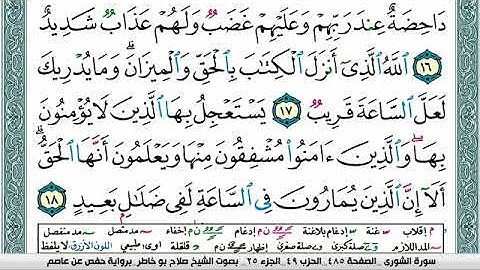 دَاحِضَةٌ عِندَ رَبِّهِمْ وَعَلَيْهِمْ غَضَبٌ وَلَهُمْ عَذَابٌ شَدِيدٌ
١٦ ٱللَّهُ ٱلَّذِىٓ أَنزَلَ ٱلْكِتَٰبَ بِٱلْحَقِّ وَٱلْمِيزَانَ ۗ وَمَا يُدْرِيكَ
لَعَلَّ ٱلسَّاعَةَ قَرِيبٌ ١٧ يَسْتَعْجِلُ بِهَا ٱلَّذِينَ لَا يُؤْمِنُونَ
بِهَا ۖ وَٱلَّذِينَ ءَامَنُوا۟ مُشْفِقُونَ مِنْهَا وَيَعْلَمُونَ أَنَّهَا ٱلْحَقُّ ۗ
أَلَآ إِنَّ ٱلَّذِينَ يُمَارُونَ فِى ٱلسَّاعَةِ لَفِى ضَلَٰلٍۭ بَعِيدٍ ١٨
م إقلاب غنة إدغام بلاغنة ن م إدغام ن م إخفاء مد متصل مد منفصل
المد اللازم صلة كبرى صلة صغرى إظهار ن م قلقلة اوى طبيعي اللون الأزرق لا يلفظ
سورة الشورى - الصفحة ٤٨٥ - الحزب ٤٩ - الجزء ٢٥ - بصوت الشيخ صلاح بو خاطر - برواية حفص عن عاصم